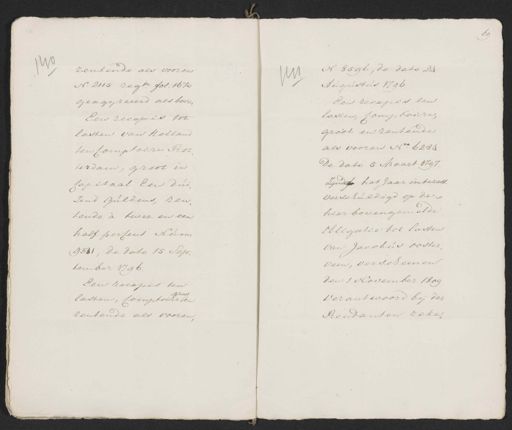 140
rentende als vooren
N 2115 regt fol 167
geagreeerd als boven
Een recepis tot
lasten van Holland
ten Comptoire Rot-
terdam, groot in
Capitaal Een dui-
zend Guldens, ren-
tende à twee en een
half percent
de dato 15 Sep-
tember 1796
Een recepis ten
lasten, Comptoire
groot
rentende als vooren,
69
141
N 8596, de dato 24
Augustus 1796
Een recepis ten
lasten, Comptoire,
groot en rentende
als vooren No 6234
De dato 8 Maart 1797
het Jaar interest
verschuldigd op de
hier bovengemelde
obligatie ten lasten
van Jacobus ooster-
veen, verscheenen
den 1 November 1809
verantwoord bij der
Rendanten reke-